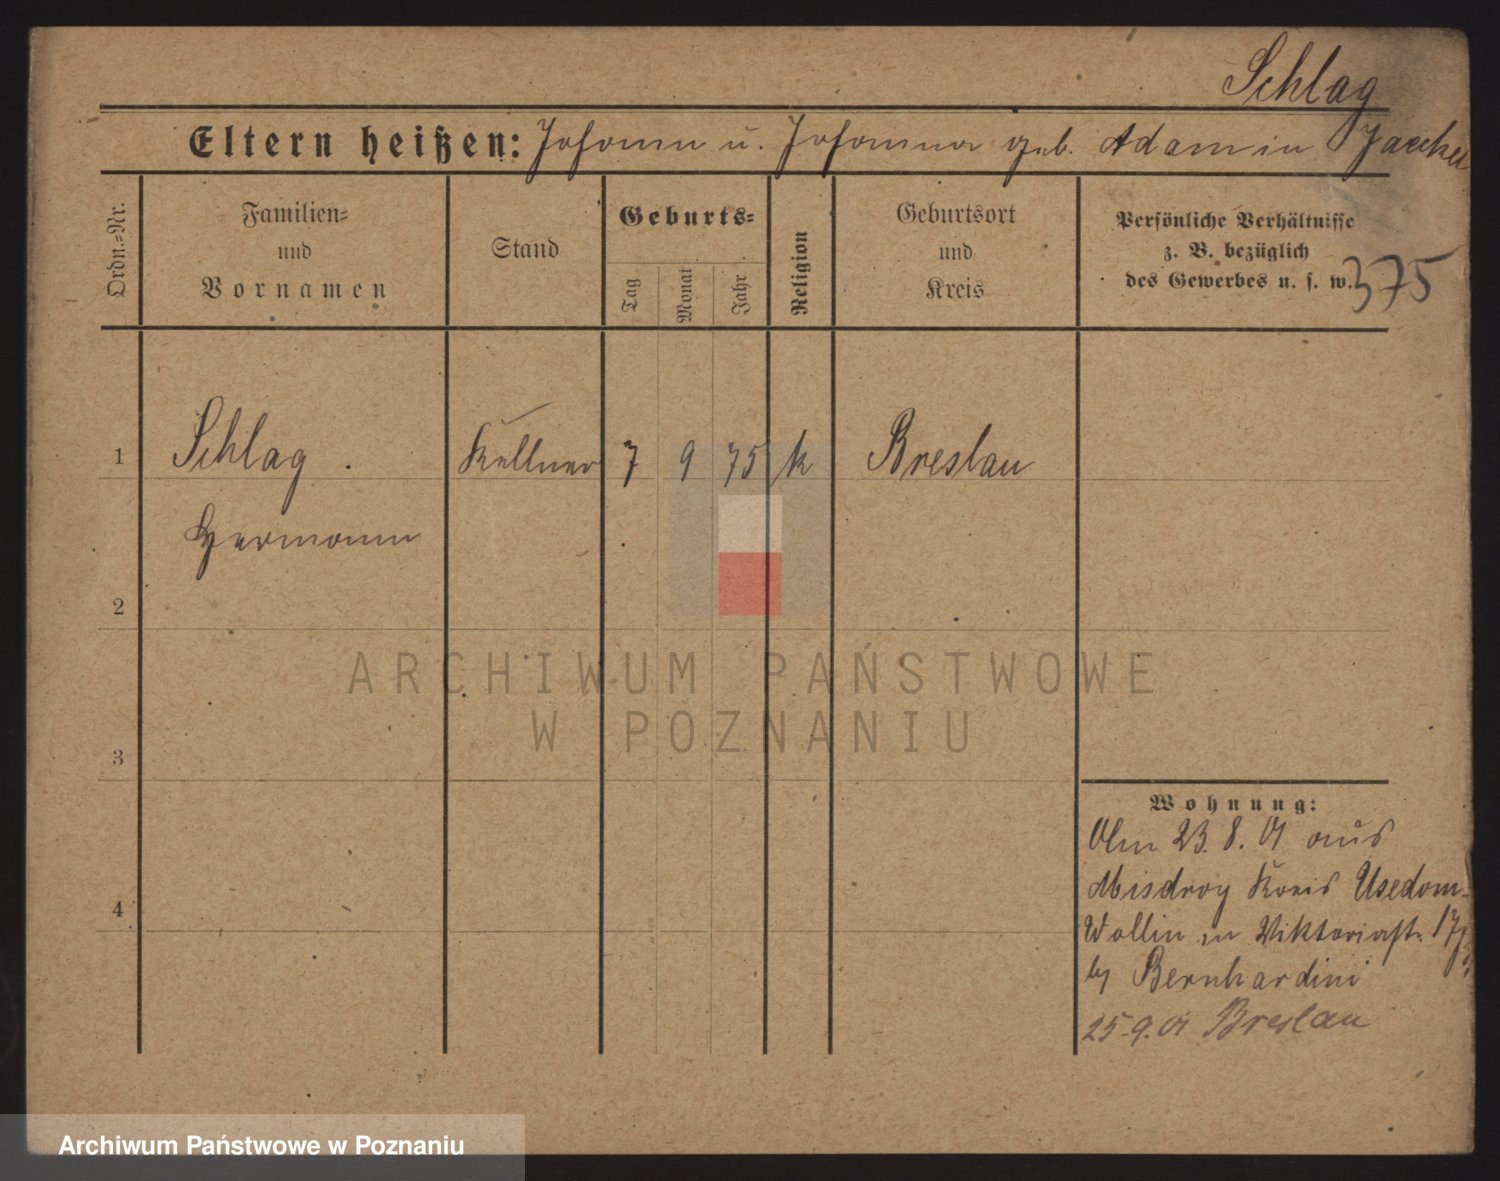 Schlag
Eltern heißen: Johann u. Johanna geb. Adam in Jaeckel
Ordn.=Nr.
Familien=
und
Vornamen
Stand
Geburts=
Tag
Monat
Jahr
Religion
Geburtsort
und
Kreis
Persönliche Verhältnisse
z. B. bezüglich
des Gewerbes u. s. w.
375
1 Schlag. Kellner 7 9 75 k Breslau
Hermann
2
ARCHIWUM PAŃSTWOWE
W POZNANIU
3
Wohnung:
Am 23.8.01 aus
Misdroy Kreis Usedom-
4
Wollin in Viktoriast. 17
by Bernhardini
25-9.01 Breslau
Archiwum Państwowe w Poznaniu